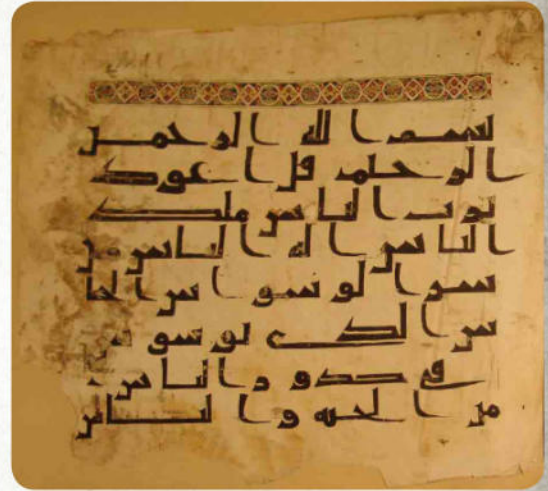 بسم الله الرحمن
الرحيم قل اعوذ
برب الناس ملك
الناس اله الناس من
سر الوسواس الخنا
س الذي يوسوس
في صدور الناس
من الجنه و الناس